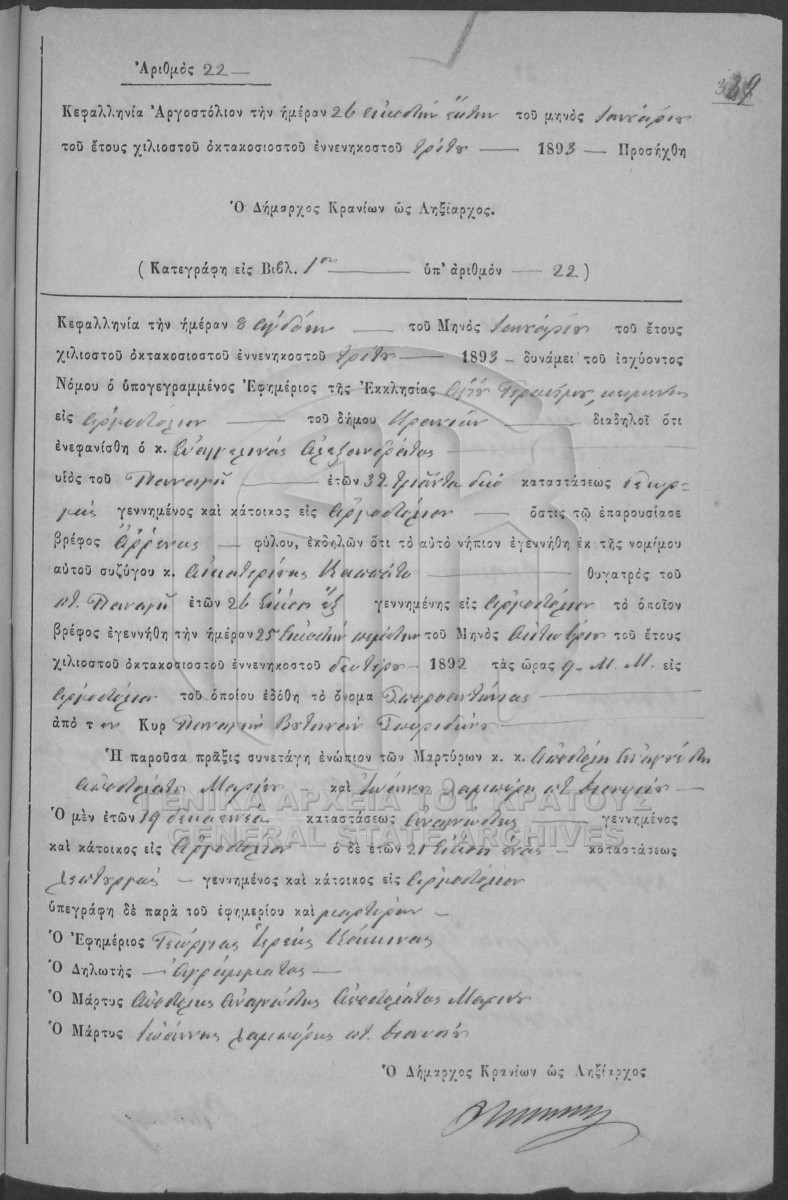 Ἀριθμὸς 22 —
Κεφαλληνία Ἀργοστόλιον τὴν ἡμέραν 26 εἰκοστὴν ἕκτην τοῦ μηνὸς Ἰανουαρίου
τοῦ ἔτους χιλιοστοῦ ὀκτακοσιοστοῦ ἐννενηκοστοῦ τρίτου — 1893 — Προσήχθη
Ὁ Δήμαρχος Κρανίων ὡς Ληξίαρχος.
( Κατεγράφη εἰς Βιβλ. 1ον — ὑπ' ἀριθμὸν — 22 )
Κεφαλληνία τὴν ἡμέραν 8 ὀγδόην — τοῦ Μηνὸς Ἰανουαρίου τοῦ ἔτους
χιλιοστοῦ ὀκτακοσιοστοῦ ἐννενηκοστοῦ τρίτου — 1893 — δυνάμει τοῦ ἰσχύοντος
Νόμου ὁ ὑπογεγραμμένος Ἐφημέριος τῆς Ἐκκλησίας Ἁγίου Γερασίμου
εἰς Ἀργοστόλιον — τοῦ δήμου Κρανίων — διαδηλοῖ ὅτι
ἐνεφανίσθη ὁ κ. Εὐαγγελινός Ἀλεξανδράτος —
υἱὸς τοῦ Παναγῆ — ἐτῶν 32 τριάντα δύο καταστάσεως γεωρ-
γός γεννημένος καὶ κάτοικος εἰς Ἀργοστόλιον — ὅστις τῷ ἐπαρουσίασε
βρέφος ἄρρενος — φύλου, ἐκδηλῶν ὅτι τὸ αὐτὸ νήπιον ἐγεννήθη ἐκ τῆς νομίμου
αὐτοῦ συζύγου κ. Αἰκατερίνης — θυγατρὸς τοῦ
ποτ. Παναγῆ ἐτῶν 26 εἴκοσι ἕξ γεννημένης εἰς Ἀργοστόλιον τὸ ὁποῖον
βρέφος ἐγεννήθη τὴν ἡμέραν 25 εἰκοστὴν πέμπτην τοῦ Μηνὸς Ὀκτωβρίου τοῦ ἔτους
χιλιοστοῦ ὀκτακοσιοστοῦ ἐννενηκοστοῦ δευτέρου — 1892 τὰς ὥρας 9 — Μ. Μ. εἰς
Ἀργοστόλιον τοῦ ὁποίου ἐδόθη τὸ ὄνομα —
ἀπὸ τον Κυρ Παναγῆν
Ἡ παροῦσα πρᾶξις συνετάγη ἐνώπιον τῶν Μαρτύρων κ. κ. Ἀποστόλη Ἀναγνώστη
Ἀποστολάτου Μαρίνου — καὶ Ἰωάννου —
Ὁ μὲν ἐτῶν 19 δεκαεννέα — καταστάσεως ἀναγνώστης — γεννημένος
καὶ κάτοικος εἰς Ἀργοστόλιον ὁ δὲ ἐτῶν 21 εἴκοσι ἑνός — καταστάσεως
— γεννημένος καὶ κάτοικος εἰς Ἀργοστόλιον
ὑπεγράφη δὲ παρὰ τοῦ ἐφημερίου καὶ μαρτύρων —
Ὁ Ἐφημέριος Γεώργιος Ἱερεύς Κόκκινος
Ὁ Δηλωτὴς — Ἀγράμματος —
Ὁ Μάρτυς Ἀποστόλης Ἀναγνώστης Ἀποστολάτος Μαρίνου
Ὁ Μάρτυς Ἰωάννης
Ὁ Δήμαρχος Κρανίων ὡς Ληξίαρχος
ΓΕΝΙΚΑ ΑΡΧΕΙΑ ΤΟΥ ΚΡΑΤΟΥΣ
GENERAL STATE ARCHIVES